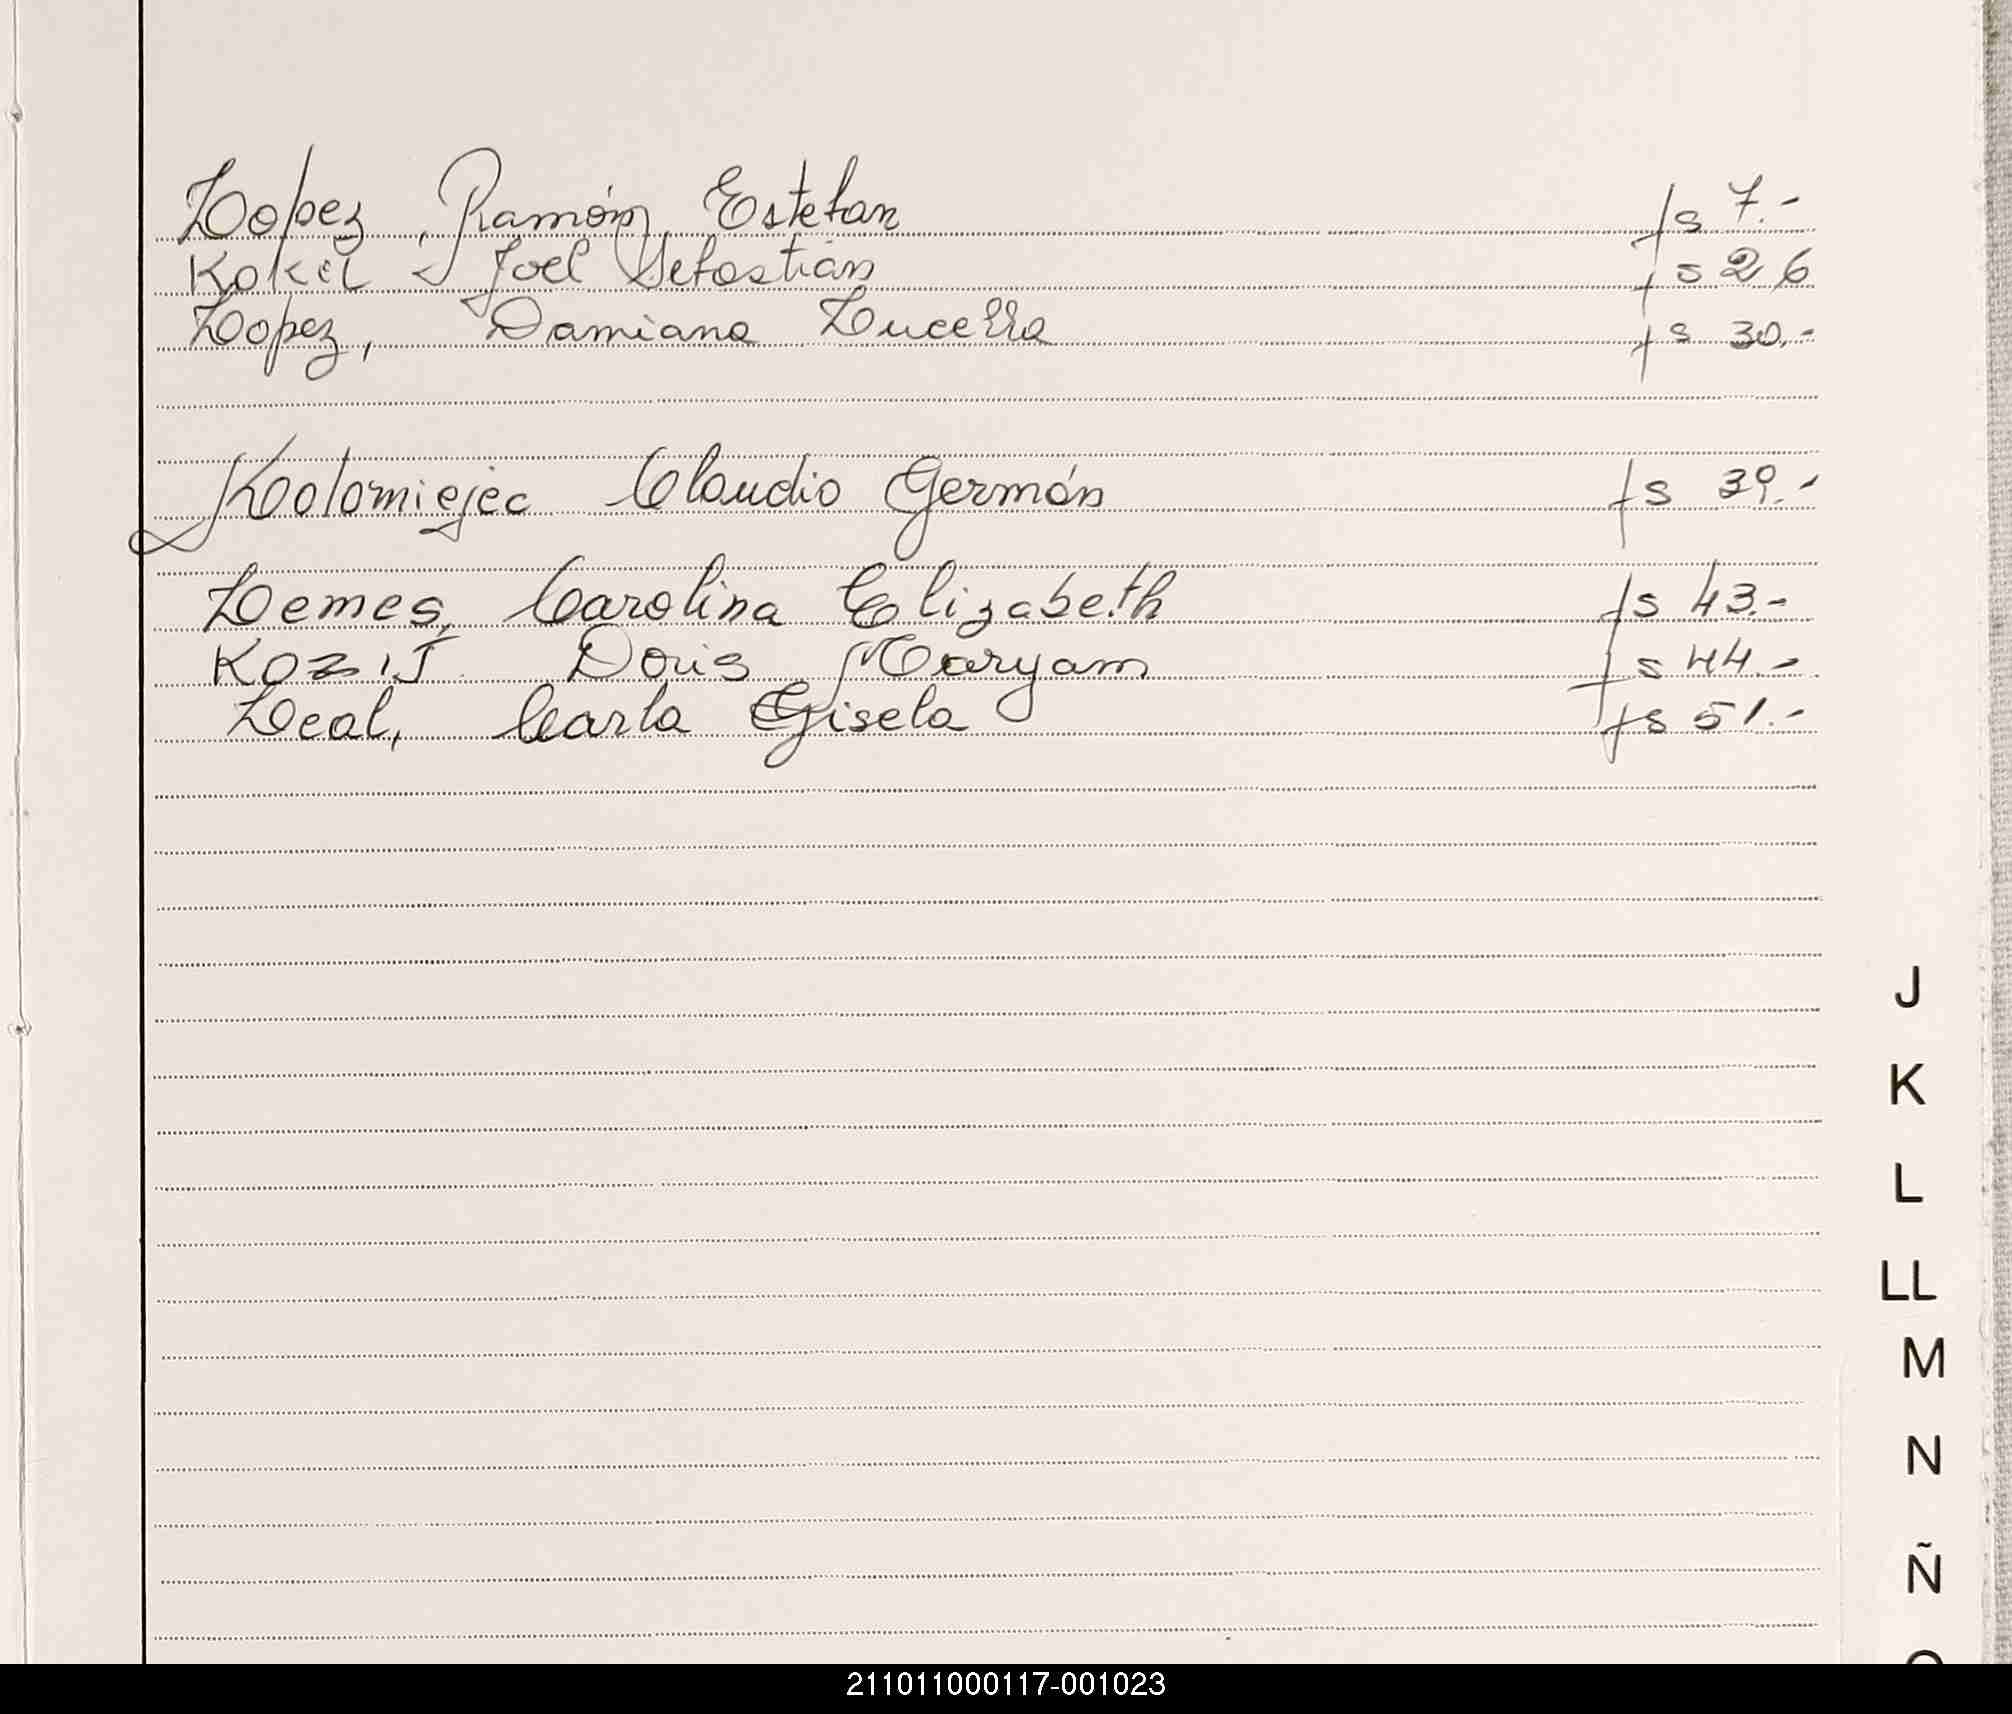 Lopez, Ramón Estefan fs 7.-
Kokil Joel Sebastián fs 26
Lopez, Damiana Lucella fs 30.-
Kolomiejec Claudio Germón fs 39.-
Lemes, Carolina Elizabeth fs 43.-
KozIJ Doris Maryam fs 44.-
Leal, Carla Gisela fs 51.-
J
K
L
LL
M
N
Ñ
211011000117-001023